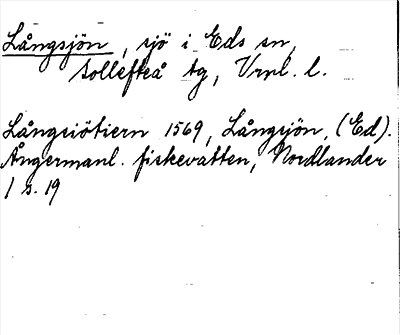 Långsjön, sjö i Eds sn,
Sollefteå tg, Vrnl. l.
Långsiötiern 1569, Långsjön, (Ed).
Ångermanl. fiskevatten, Nordlander
1 s. 19